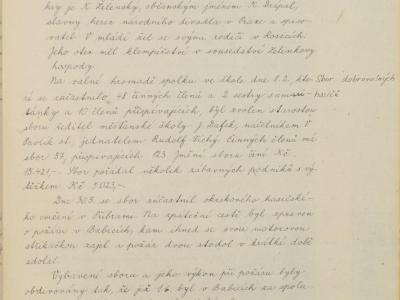 hry je K. Želenský, občanským jménem K. Drápal,
slavný herec národního divadla v Praze a spiso-
vatel. V mládí žil se svými rodiči v Kosicích.
Jeho otec měl klempířství v sousedství Zelenkovy
hospody.
Na valné hromadě spolku ve škole dne 8.2. kte- Sbor dobrovolných
ré se zúčastnilo 48 činných členů a 2 sestry sama- hasičů
ritánky a 10 členů přispívajících, byl zvolen starostou
sboru ředitel měšťanské školy J. Dafek, náčelníkem V.
st., jednatelem Rudolf Tichý. Činných členů má
sbor 57, přispívajících 123. Jmění sboru činí Kč
15.421,-. Sbor pořádal několik zábavných podniků s vý-
těžkem Kč 5.023,-.
Dne 30.5. se sbor zúčastnil okrskového hasičské-
ho cvičení v Příbrami. Na zpáteční cestě byl zpraven
o požáru v Babicích, kam ihned se svou motorovou
stříkačkou zajel a požár dvou stodol v krátké době
zdolal.
Vybavení sboru a jeho výkon při požáru byly
obdivovány tak, že již 1.6. byl v Babicích za spolu-